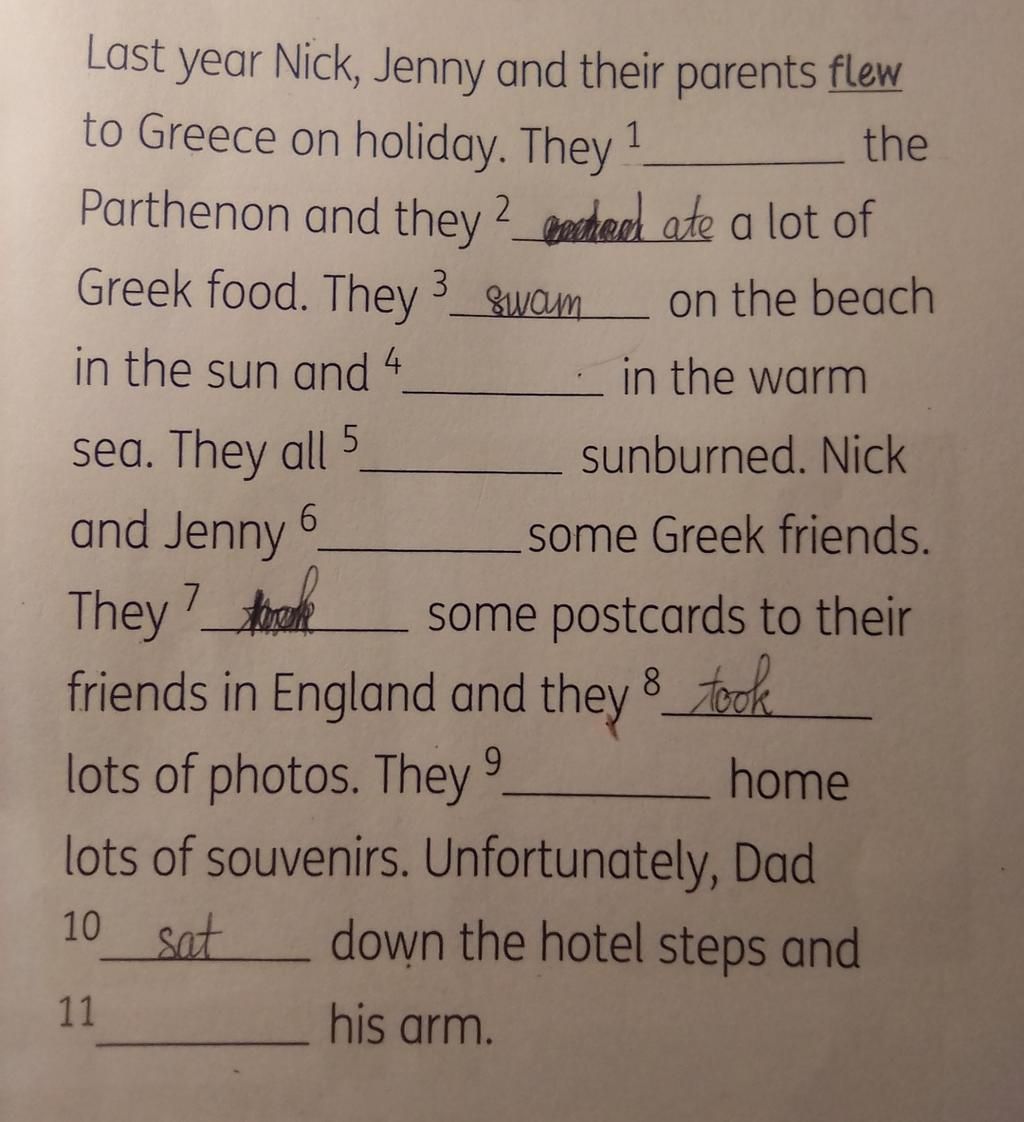 Last year Nick, Jenny and their parents flew
to Greece on holiday. They 1 __________ the
Parthenon and they 2 ate a lot of
Greek food. They 3 swam on the beach
in the sun and 4 __________ in the warm
sea. They all 5 __________ sunburned. Nick
and Jenny 6 __________ some Greek friends.
They 7 __________ some postcards to their
friends in England and they 8 took
lots of photos. They 9 __________ home
lots of souvenirs. Unfortunately, Dad
10 sat down the hotel steps and
11 __________ his arm.